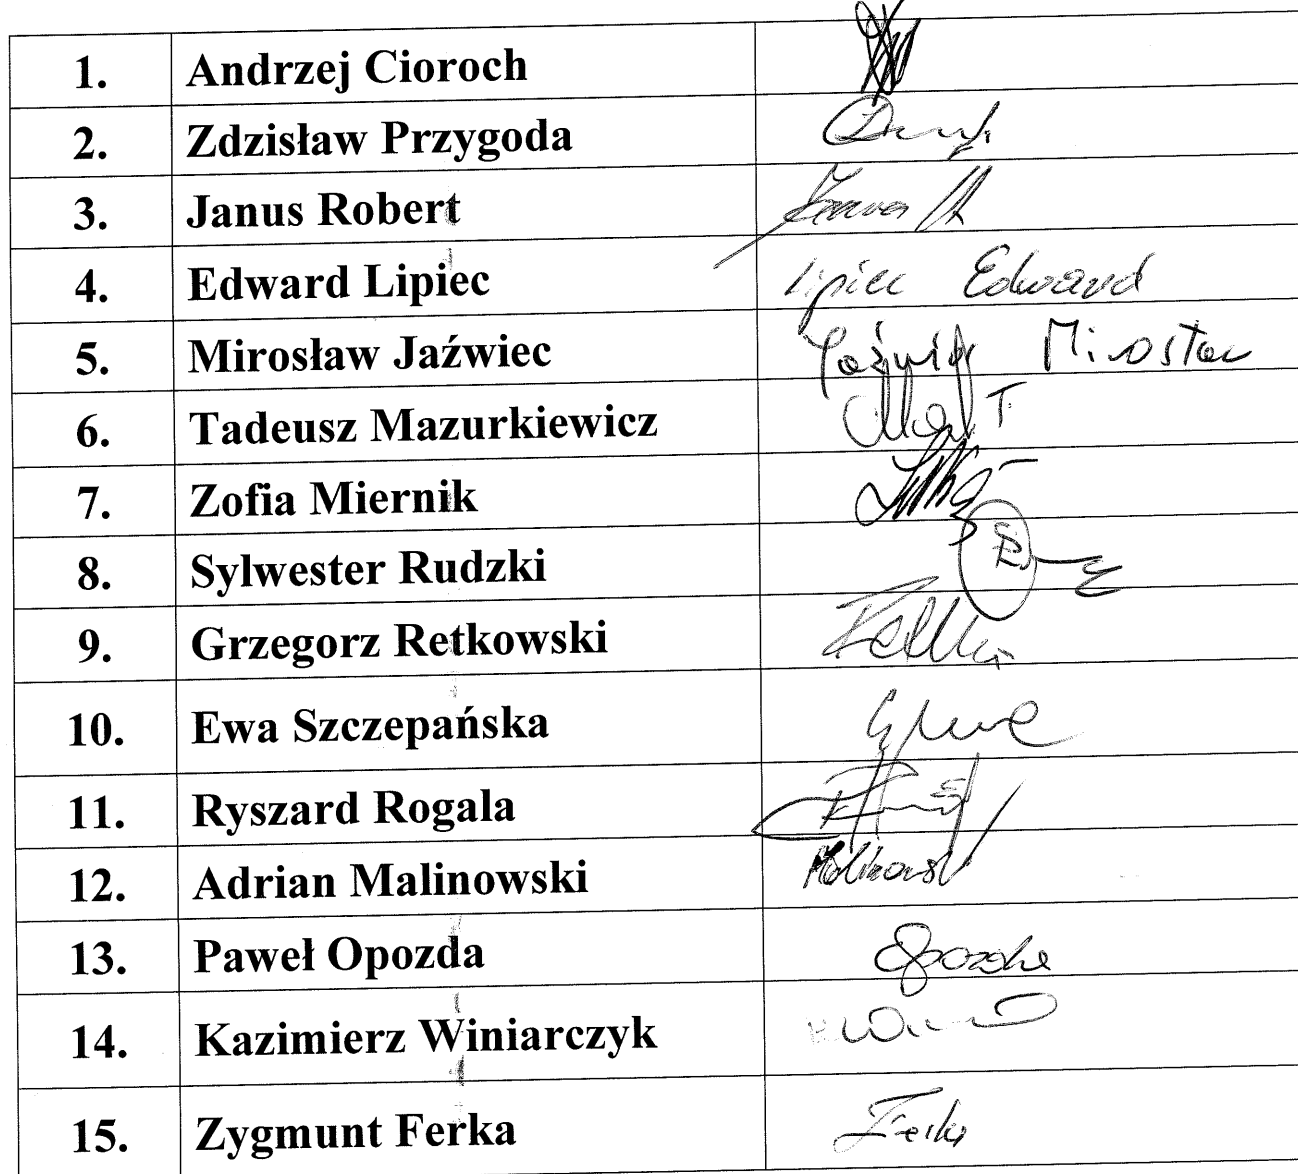 1. Andrzej Cioroch
2. Zdzisław Przygoda
3. Janus Robert
4. Edward Lipiec Lipiec Edward
5. Mirosław Jaźwiec Jaźwiec Mirosław
6. Tadeusz Mazurkiewicz
7. Zofia Miernik
8. Sylwester Rudzki
9. Grzegorz Retkowski
10. Ewa Szczepańska
11. Ryszard Rogala
12. Adrian Malinowski Malinowski
13. Paweł Opozda Opozda
14. Kazimierz Winiarczyk
15. Zygmunt Ferka Ferka